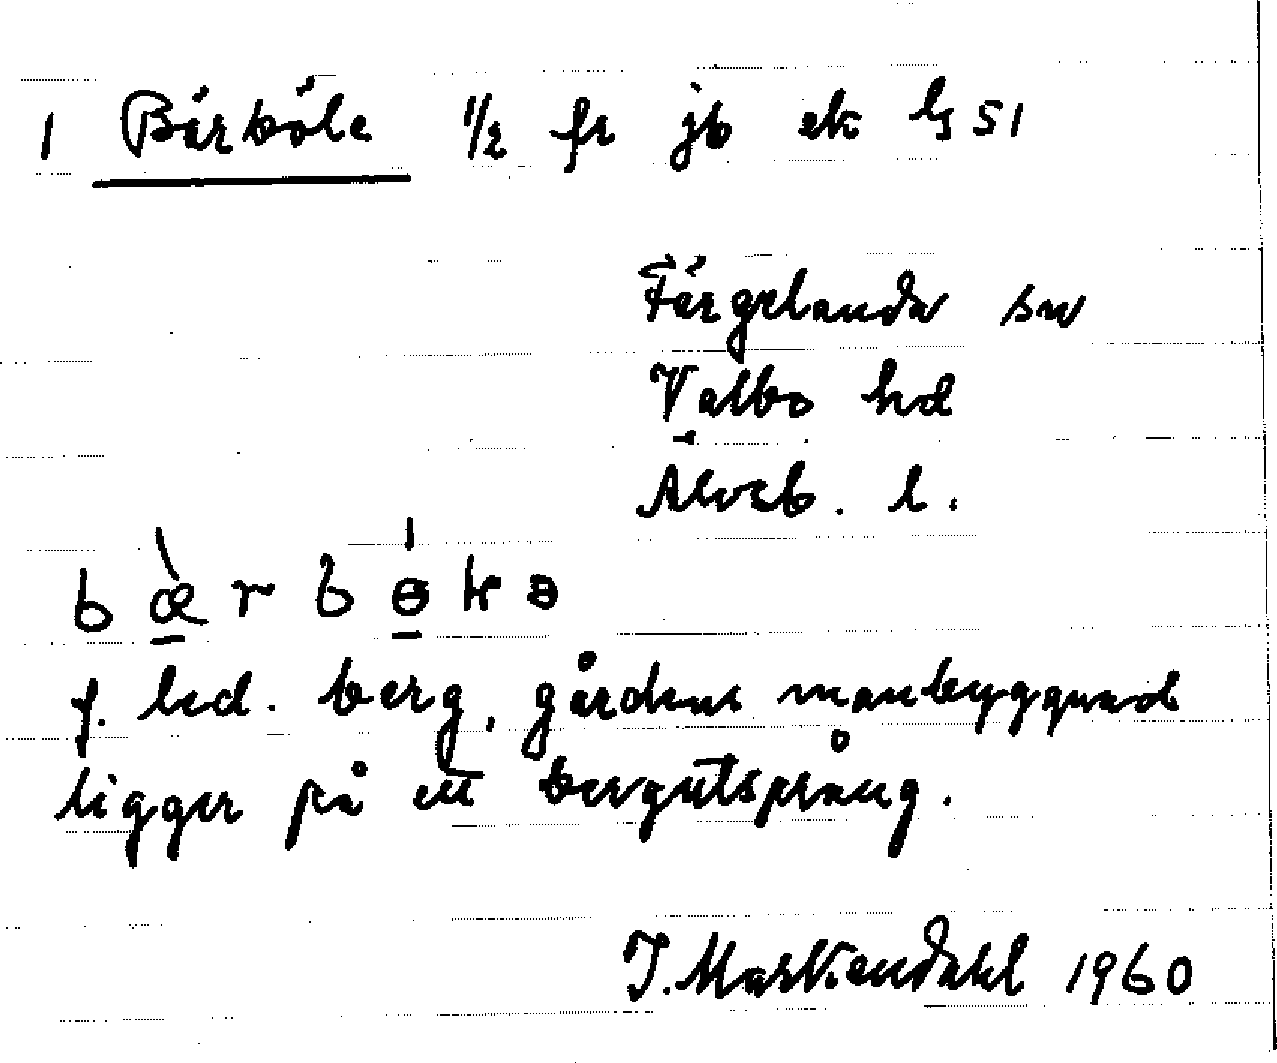 1 Bärböle 1/2 fr jb ek ls 51
Färgelanda sn
Valbo hd
Älvsb. l.
f. led. berg, gårdens manbyggnad
ligger på ett bergutsprång.
J. Markendahl 1960